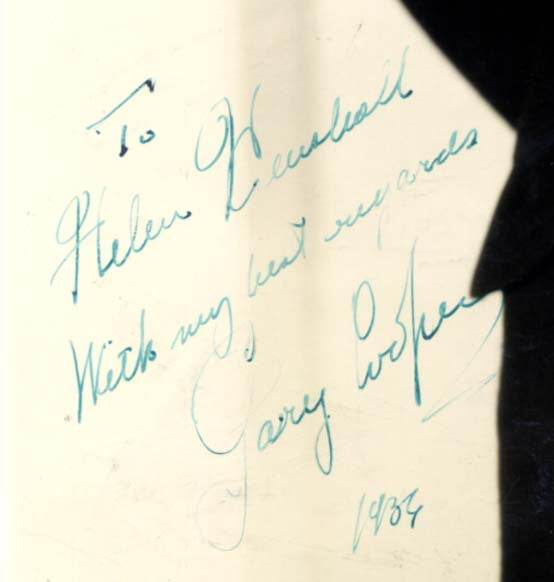 To
Helen
With my best regards
Gary Cooper